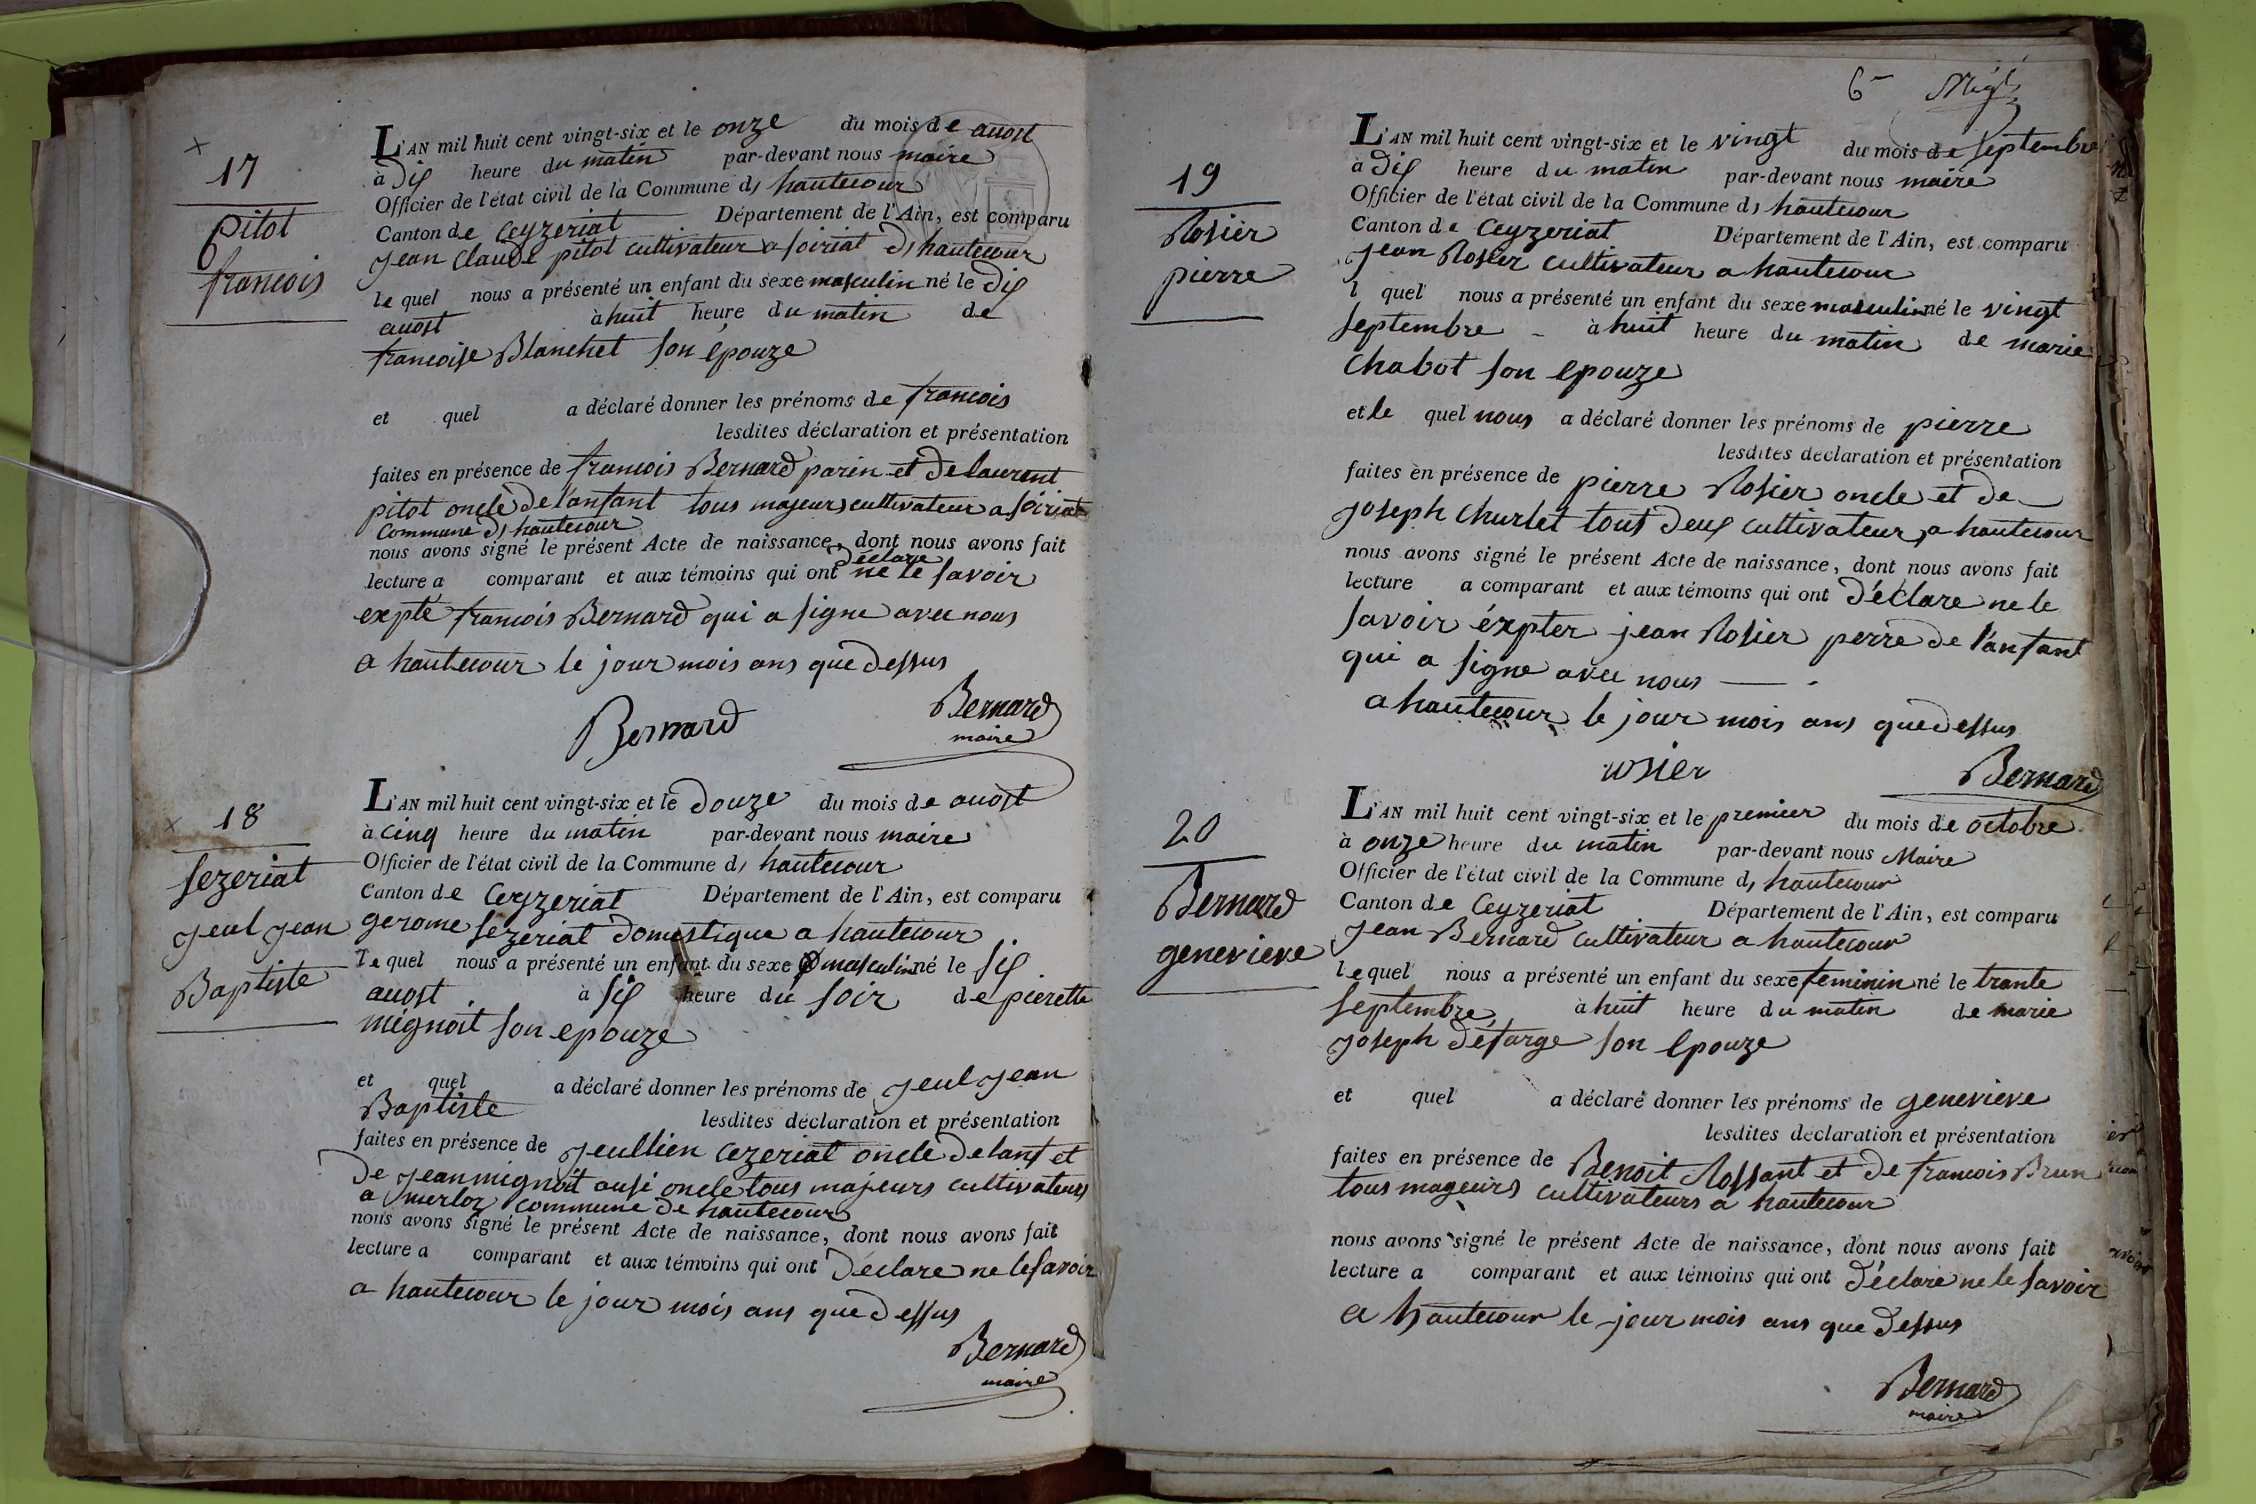 17
pitot
francois
L'AN mil huit cent vingt-six et le onze du mois de auost
à dix heure du matin par-devant nous maire
Officier de l'état civil de la Commune d, hautecour
Canton de Ceyzeriat Département de l'Ain, est comparu
jean Claude pitot cultivateur a soiriat d, hautecour
le quel nous a présenté un enfant du sexe masculin né le dix
auost à huit heure du matin de
francoise Blanchet son épouze
et quel a déclaré donner les prénoms de francois
lesdites déclaration et présentation
faites en présence de francois Bernard parin et de laurent
pitot oncle de l'anfant tous majeurs cultivateur a soiriat
Commune d, hautecour
nous avons signé le présent Acte de naissance, dont nous avons fait
déclare
lecture a comparant et aux témoins qui ont ne le savoir
expte francois Bernard qui a signe avec nous
a hautecour le jour mois ans que dessus
Bernard
Bernard
maire
18
sezeriat
jeul jean
Baptiste
L'AN mil huit cent vingt-six et le douze du mois de auost
à cinq heure du matin par-devant nous maire
Officier de l'état civil de la Commune d, hautecour
Canton de Ceyzeriat Département de l'Ain, est comparu
gerome sezeriat domestique a hautecour
le quel nous a présenté un enfant du sexe masculin né le six
auost à six heure du soir de pierette
mignoit son epouze
et quel a déclaré donner les prénoms de jeul jean
Baptiste lesdites déclaration et présentation
faites en présence de jeullien cezeriat oncle de lanf et
de jean mignoit ausi oncle tous majeurs cultivateurs
a merloz commune de hautecour
nous avons signé le présent Acte de naissance, dont nous avons fait
lecture a comparant et aux témoins qui ont déclare ne le savoir
a hautecour le jour mois ans que dessus
Bernard
maire
6
19
Rosier
pierre
L'AN mil huit cent vingt-six et le vingt du mois de septembre
à dix heure du matin par-devant nous maire
Officier de l'état civil de la Commune d, hautecour
Canton de Ceyzeriat Département de l'Ain, est comparu
jean Rosier cultivateur a hautecour
l quel nous a présenté un enfant du sexe masculin né le vingt
septembre à huit heure du matin de marie
Chabot son epouze
et le quel nous a déclaré donner les prénoms de pierre
lesdites déclaration et présentation
faites en présence de pierre Rosier oncle et de
joseph Churlet tous deux cultivateur, a hautecour
nous avons signé le présent Acte de naissance, dont nous avons fait
lecture a comparant et aux témoins qui ont déclare ne le
savoir éxpter jean Rosier perre de l'anfant
qui a signe avec nous
a hautecour le jour mois ans que dessus
rosier
Bernard
20
Bernard
genevieve
L'AN mil huit cent vingt-six et le premier du mois de octobre
à onze heure du matin par-devant nous Maire
Officier de l'état civil de la Commune d, hautecour
Canton de Ceyzeriat Département de l'Ain, est comparu
jean Bernard cultivateur a hautecour
le quel nous a présenté un enfant du sexe feminin né le trante
septembre à huit heure du matin de marie
joseph défarge son epouze
et quel a déclaré donner les prénoms de genevieve
lesdites déclaration et présentation
faites en présence de Benoit Rossant et de francois Brun
tous mageurs cultivateurs a hautecour
nous avons signé le présent Acte de naissance, dont nous avons fait
lecture a comparant et aux témoins qui ont déclare ne le savoir
a hautecour le jour mois ans que dessus
Bernard
maire